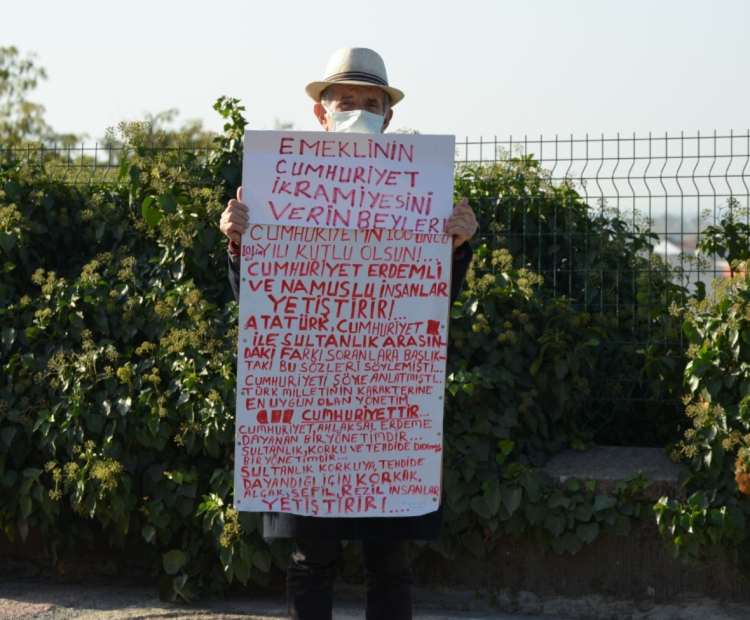 EMEKLİNİN
CUMHURİYET
İKRAMİYESİNİ
VERİN BEYLER!
CUMHURİYET'İN 100'ÜNCÜ
YILI KUTLU OLSUN!...
CUMHURİYET ERDEMLİ
VE NAMUSLU İNSANLAR
YETİŞTİRİR!...
ATATÜRK, CUMHURİYET
İLE SULTANLIK ARASIN-
DAKİ FARKI SORANLARA BAŞLIK-
TAKİ BU SÖZLERİ SÖYLEMİŞTİ.
CUMHURİYETİ ŞÖYLE ANLATMIŞTI..
TÜRK MİLLETİNİN KARAKTERİNE
EN UYGUN OLAN YÖNETİM
CUMHURİYETTİR...
CUMHURİYET, AHLAKSAL ERDEME
DAYANAN BİR YÖNETİMDİR...
SULTANLIK, KORKU VE TEHDİDE
BİR YÖNETİMDİR...
SULTANLIK KORKUYA, TEHDİDE
DAYANDIĞI İÇİN KORKAK,
ALÇAK, SEFİL, REZİL İNSANLAR
YETİŞTİRİR!....